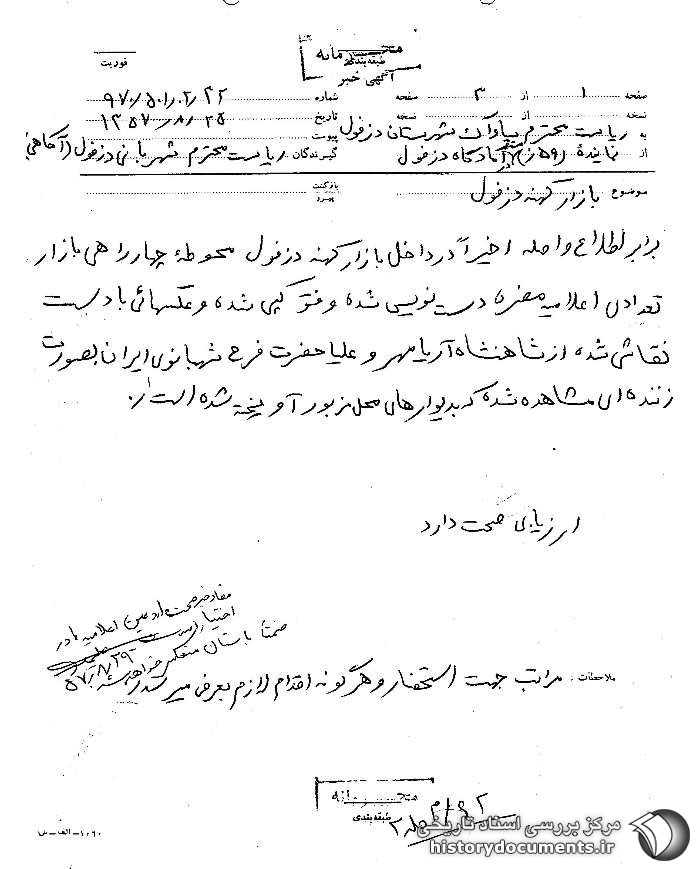 محرمانه
طبقه‌بندی
آگهی خبر
فوریت
صفحه ۱ از ۳ صفحه شماره ۹۷۰/۵۰۱۰۲/۴۲
نسخه از نسخه تاریخ ۱۳۵۷/۸/۲۵
به ریاست محترم ساواک شهرستان دزفول پیوست
از نماینده (۵۹ ز) آمادگاه دزفول گیرندگان ریاست محترم شهربانی دزفول (آگاهی)
موضوع بازار کهنه دزفول بازگشت
برابر اطلاع واصله اخیراً در داخل بازار کهنه دزفول محوطهٔ چهارراهی بازار
تعدادی اعلامیه مضره دست نویسی شده و فتوکپی شده و عکسهائی با دست
نقاشی شده از شاهنشاه آریامهر و علیاحضرت فرح شهبانوی ایران بصورت
زننده‌ای مشاهده شده که بدیوارهای محل مزبور آویخته شده است.
ارزیابی صحت دارد
مفاد خبر صحت دارد عین اعلامیه‌ها در
اختیار است
ضمناً باستان منعکس خواهد شد
۵۷/۸/۲۹
ملاحظات: مراتب جهت استحضار و هرگونه اقدام لازم بعرض میرسد
محرمانه
طبقه‌بندی
۱۰۶۰-الف-ش
مرکز بررسی اسناد تاریخی
historydocuments.ir